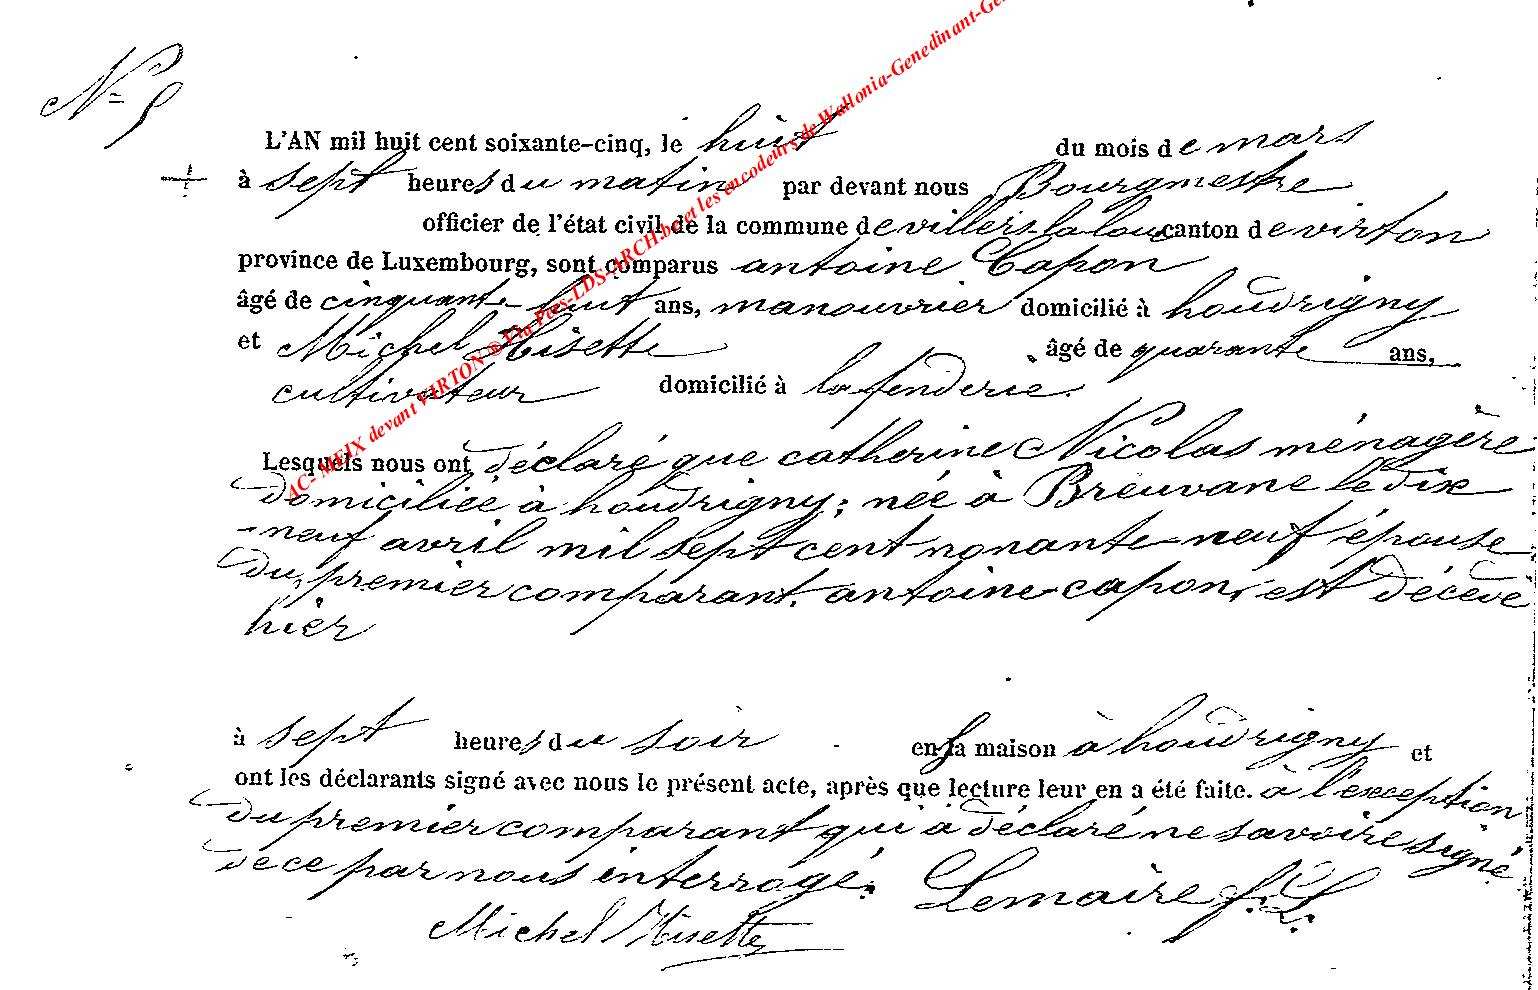 N= 5
L'AN mil huit cent soixante-cinq, le huit du mois de mars
à sept heures du matin par devant nous Bourgmestre
officier de l'état civil de la commune de villers la loue canton de virton
province de Luxembourg, sont comparus antoine Capon
âgé de cinquante-huit ans, manouvrier domicilié à houdrigny
et Michel Hisette âgé de quarante ans,
cultivateur domicilié à la fenderie.
Lesquels nous ont déclaré que catherine Nicolas ménagère
domiciliée à houdrigny; née à Breuvane le dix
-neuf avril mil sept cent nonante-neuf épouse
du premier comparant. antoine capon, est décédé
hier
à sept heures du soir en la maison à houdrigny et
ont les déclarants signé avec nous le présent acte, après que lecture leur en a été faite. à l'exception
du premier comparant qui a déclaré ne savoire signé
de ce par nous interrogé. Lemaire f. L.
Michel Hisette
AC- MEIX devant VIRTON ® Via Pères-LDS-ARCH.be et les encodeurs de Wallonia-Genedinant-Ge